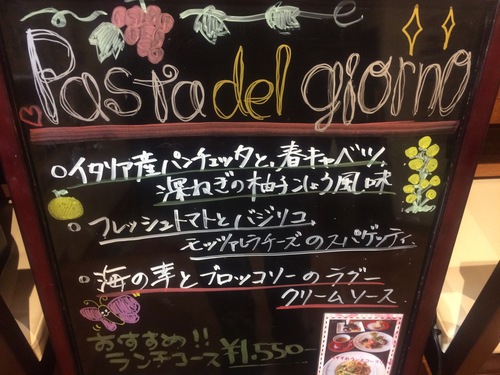 Pasta del giorno
○イタリア産パンチェッタと、春キャベツ、
深ねぎの柚子こしょう風味
○フレッシュトマトとバジリコ、
モッツァレラチーズのスパゲッティ
○海の幸とブロッコリーのラグー
クリームソース
おすすめ!!
ランチコース ¥1,550